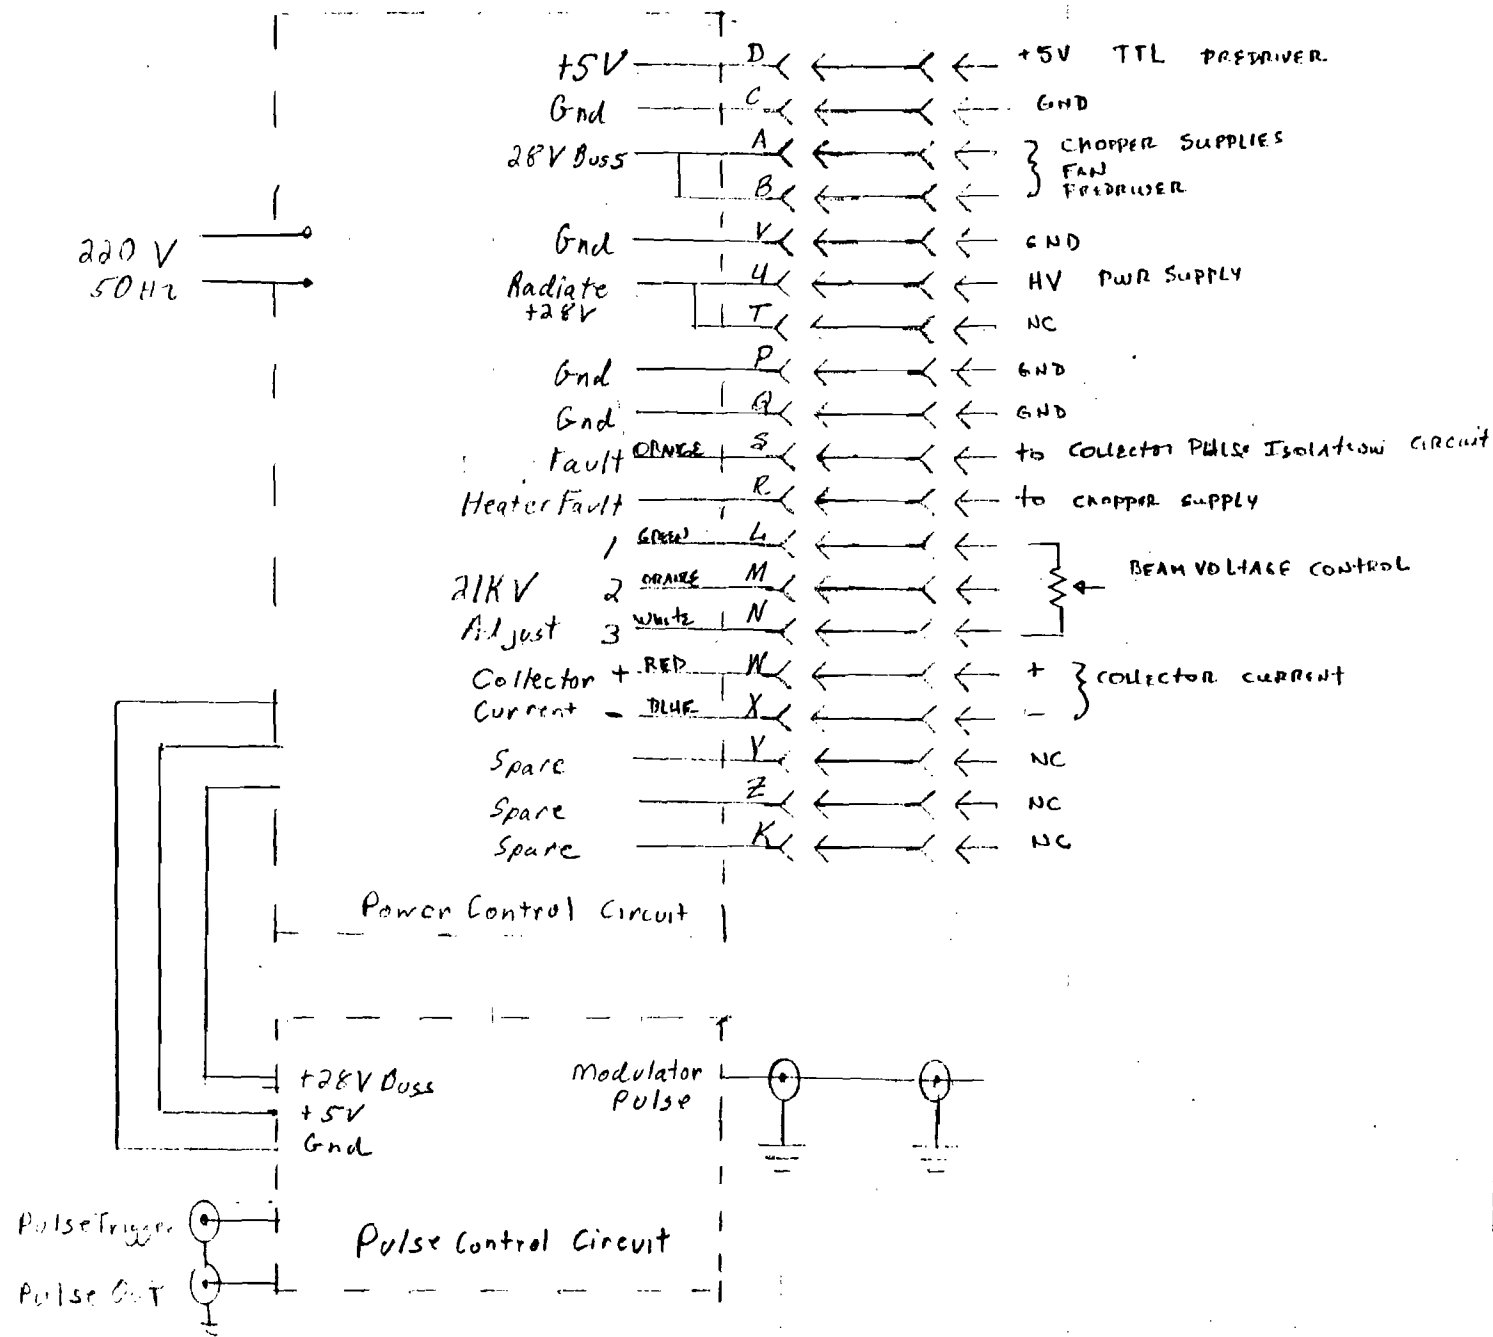 +5V D +5V TTL PREDRIVER
Gnd C GND
28V Buss A CHOPPER SUPPLIES
FAN
B PREDRIVER
220 V
50Hz
Gnd V GND
Radiate U HV PWR SUPPLY
+28V T NC
Gnd P GND
Gnd Q GND
Fault ORANGE S to COLLECTOR PULSE ISOLATION CIRCUIT
Heater Fault R to CHOPPER SUPPLY
1 GREEN L
21KV 2 ORANGE M BEAM VOLTAGE CONTROL
Adjust 3 WHITE N
Collector + RED W + COLLECTOR CURRENT
Current - BLUE X -
Spare Y NC
Spare Z NC
Spare K NC
Power Control Circuit
+28V Buss Modulator
+5V Pulse
Gnd
Pulse Trigger
Pulse Control Circuit
Pulse OUT